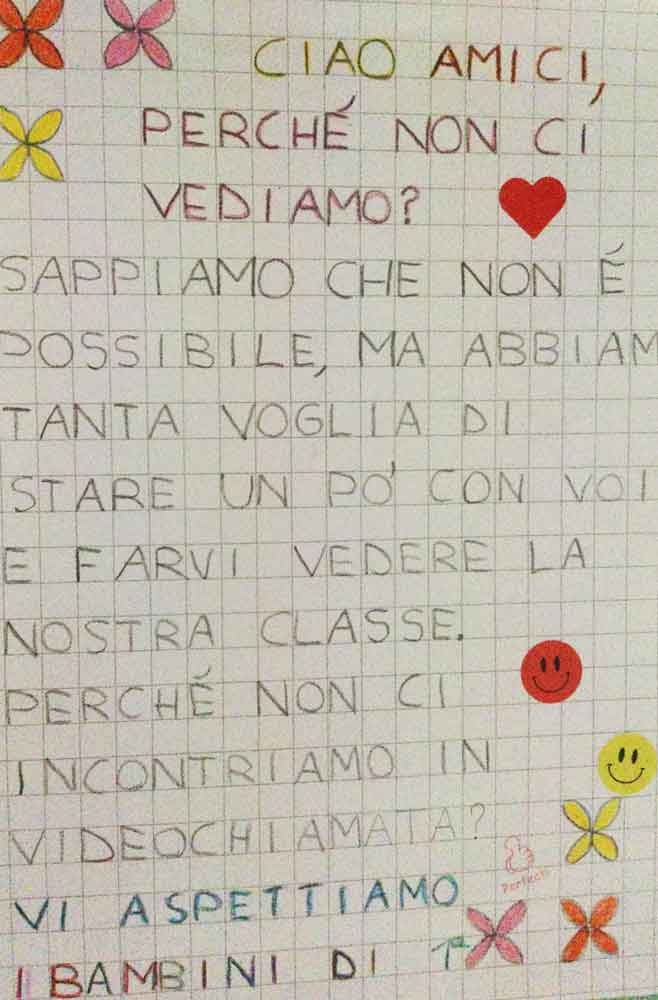 CIAO AMICI,
PERCHÉ NON CI
VEDIAMO?
SAPPIAMO CHE NON É
POSSIBILE, MA ABBIAM
TANTA VOGLIA DI
STARE UN PO' CON VOI
E FARVI VEDERE LA
NOSTRA CLASSE.
PERCHÉ NON CI
INCONTRIAMO IN
VIDEOCHIAMATA?
Perfect
VI ASPETTIAMO
I BAMBINI DI 1ª